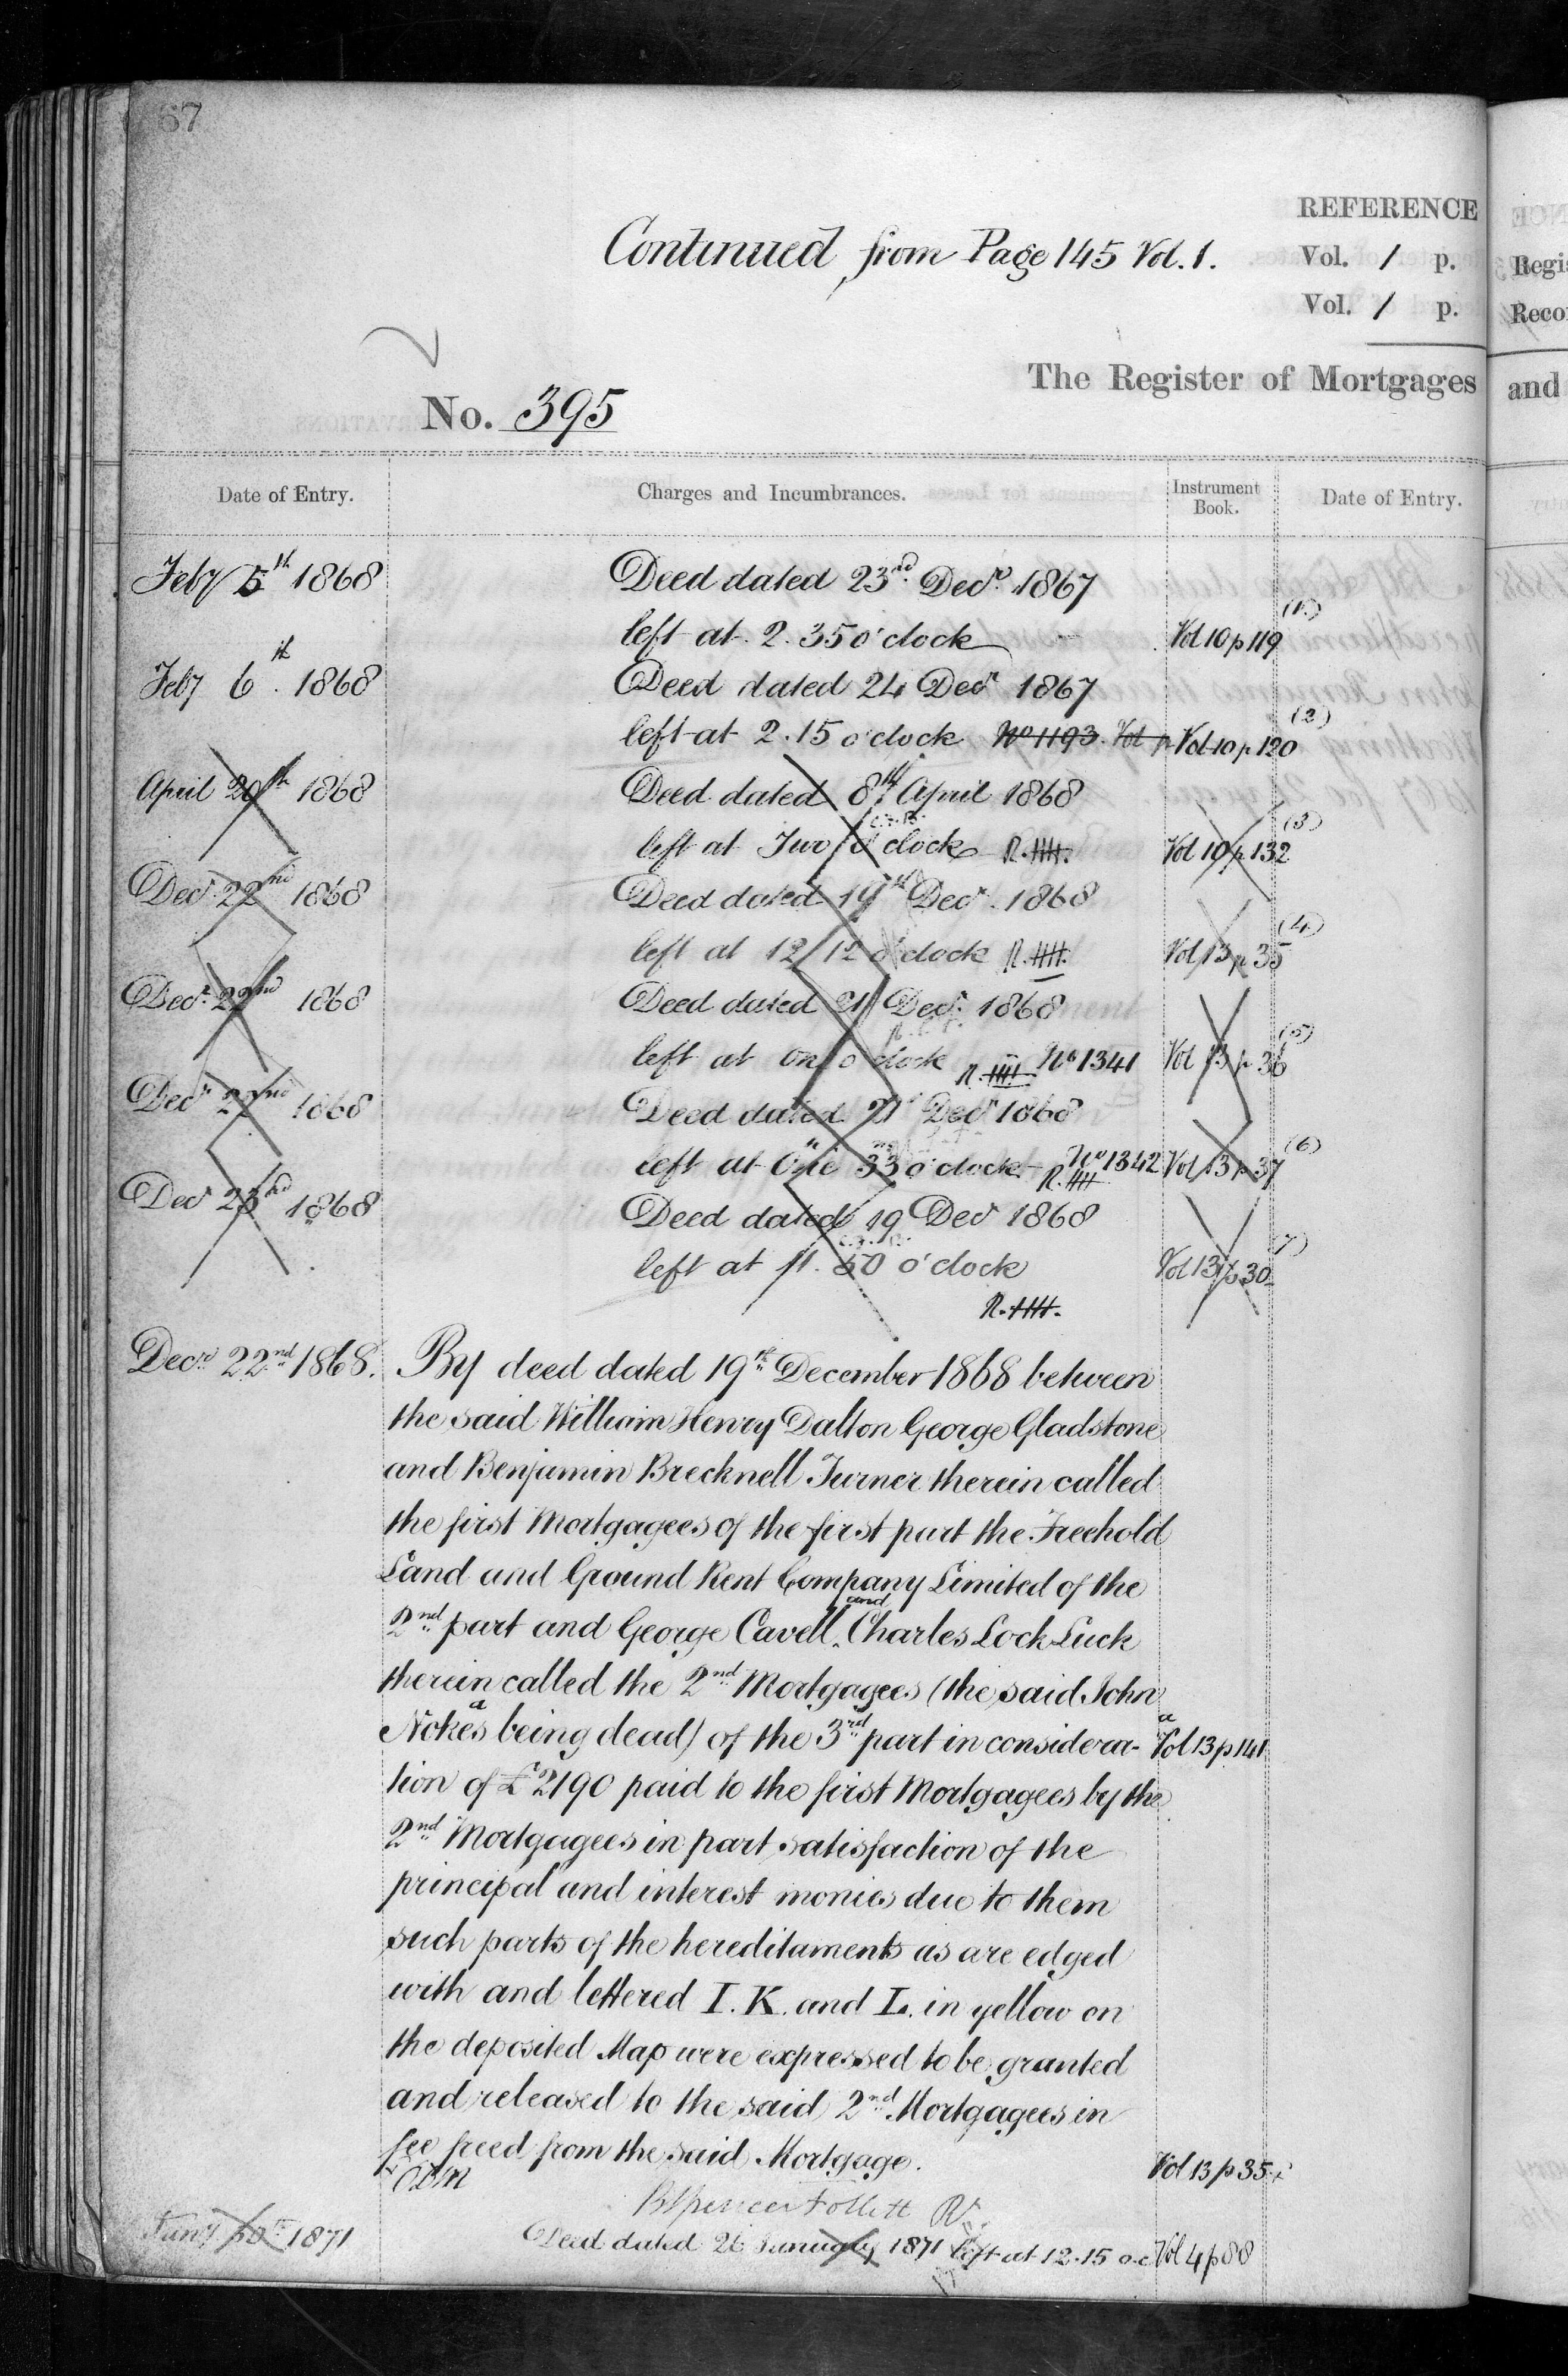 67
REFERENCE
Continued from Page 145 Vol. 1.
Vol. 1 p.
Vol. 1 p.
The Register of Mortgages
No. 395
Date of Entry.
Charges and Incumbrances.
Instrument Book.
Date of Entry.
Feby 5th 1868
Deed dated 23rd Decr. 1867
left at 2.35 o'clock
Vol 10 p 119
(1)
Feby 6th. 1868
Deed dated 24 Decr 1867
left at 2.15 o'clock No 1193. Vol p Vol 10 p 120
(2)
April 20th 1868
Deed dated 8th April 1868
left at Two o'clock R.
Vol 10 p 132
(3)
Decr. 22nd 1868
Deed dated 19th Decr. 1868
left at 12/12 o'clock R.
Vol 13 p 35
(4)
Decr. 22nd 1868
Deed dated 21 Decr. 1868
left at one o'clock R. No 1341
Vol 13 p 36
(5)
Decr 22nd 1868
Deed dated 21 Decr 1868
left at One 33 o'clock No 1342 R.
Vol 13 p 37
(6)
Decr 23rd 1868
Deed dated 19 Decr 1868
left at 11.50 o'clock
Vol 13 p 30
(7)
R.
Decr. 22nd 1868.
By deed dated 19th December 1868 between
the said William Henry Dalton George Gladstone
and Benjamin Brecknell Turner therein called
the first Mortgagees of the first part the Freehold
Land and Ground Rent Company Limited of the
2nd part and George Cavell and Charles Lock Luck
therein called the 2nd Mortgagees (the said John
Nokes a being dead) of the 3rd part in considera-
a Vol 13 p 141
tion of £2190 paid to the first Mortgagees by the
2nd Mortgagees in part satisfaction of the
principal and interest monies due to them
such parts of the hereditaments as are edged
with and lettered I. K. and L. in yellow on
the deposited Map were expressed to be granted
and released to the said 2nd Mortgagees in
fee freed from the said Mortgage.
Vol 13 p 35
B Spencer Follett Rr.
Jany 30th 1871
Deed dated 26 January 1871 left at 12.15 o.c
Vol 4 p 88
Regis
Reco
and